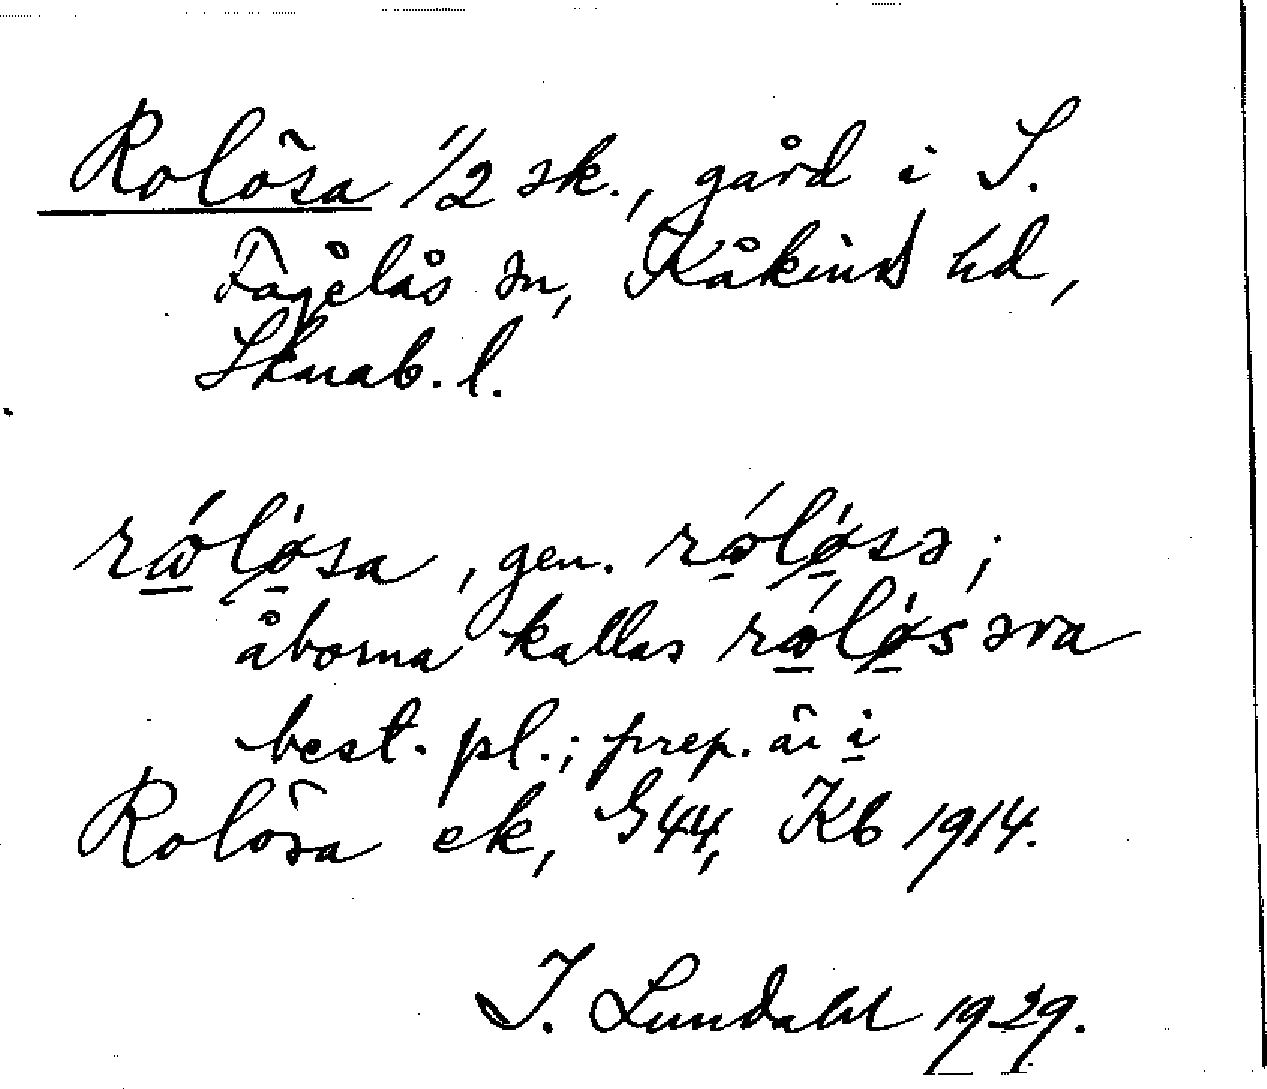 Rolösa 1/2 sk., gård i S.
Fågelås sn, Kåkinds hd,
Skarab. l.
rώlø̀sa, gen. rώlø̀sə;
åborna kallas rώlø̀səra
best. pl.; prep. är i
Rolösa ek, G44, Kb 1914.
I. Lundahl 1929.